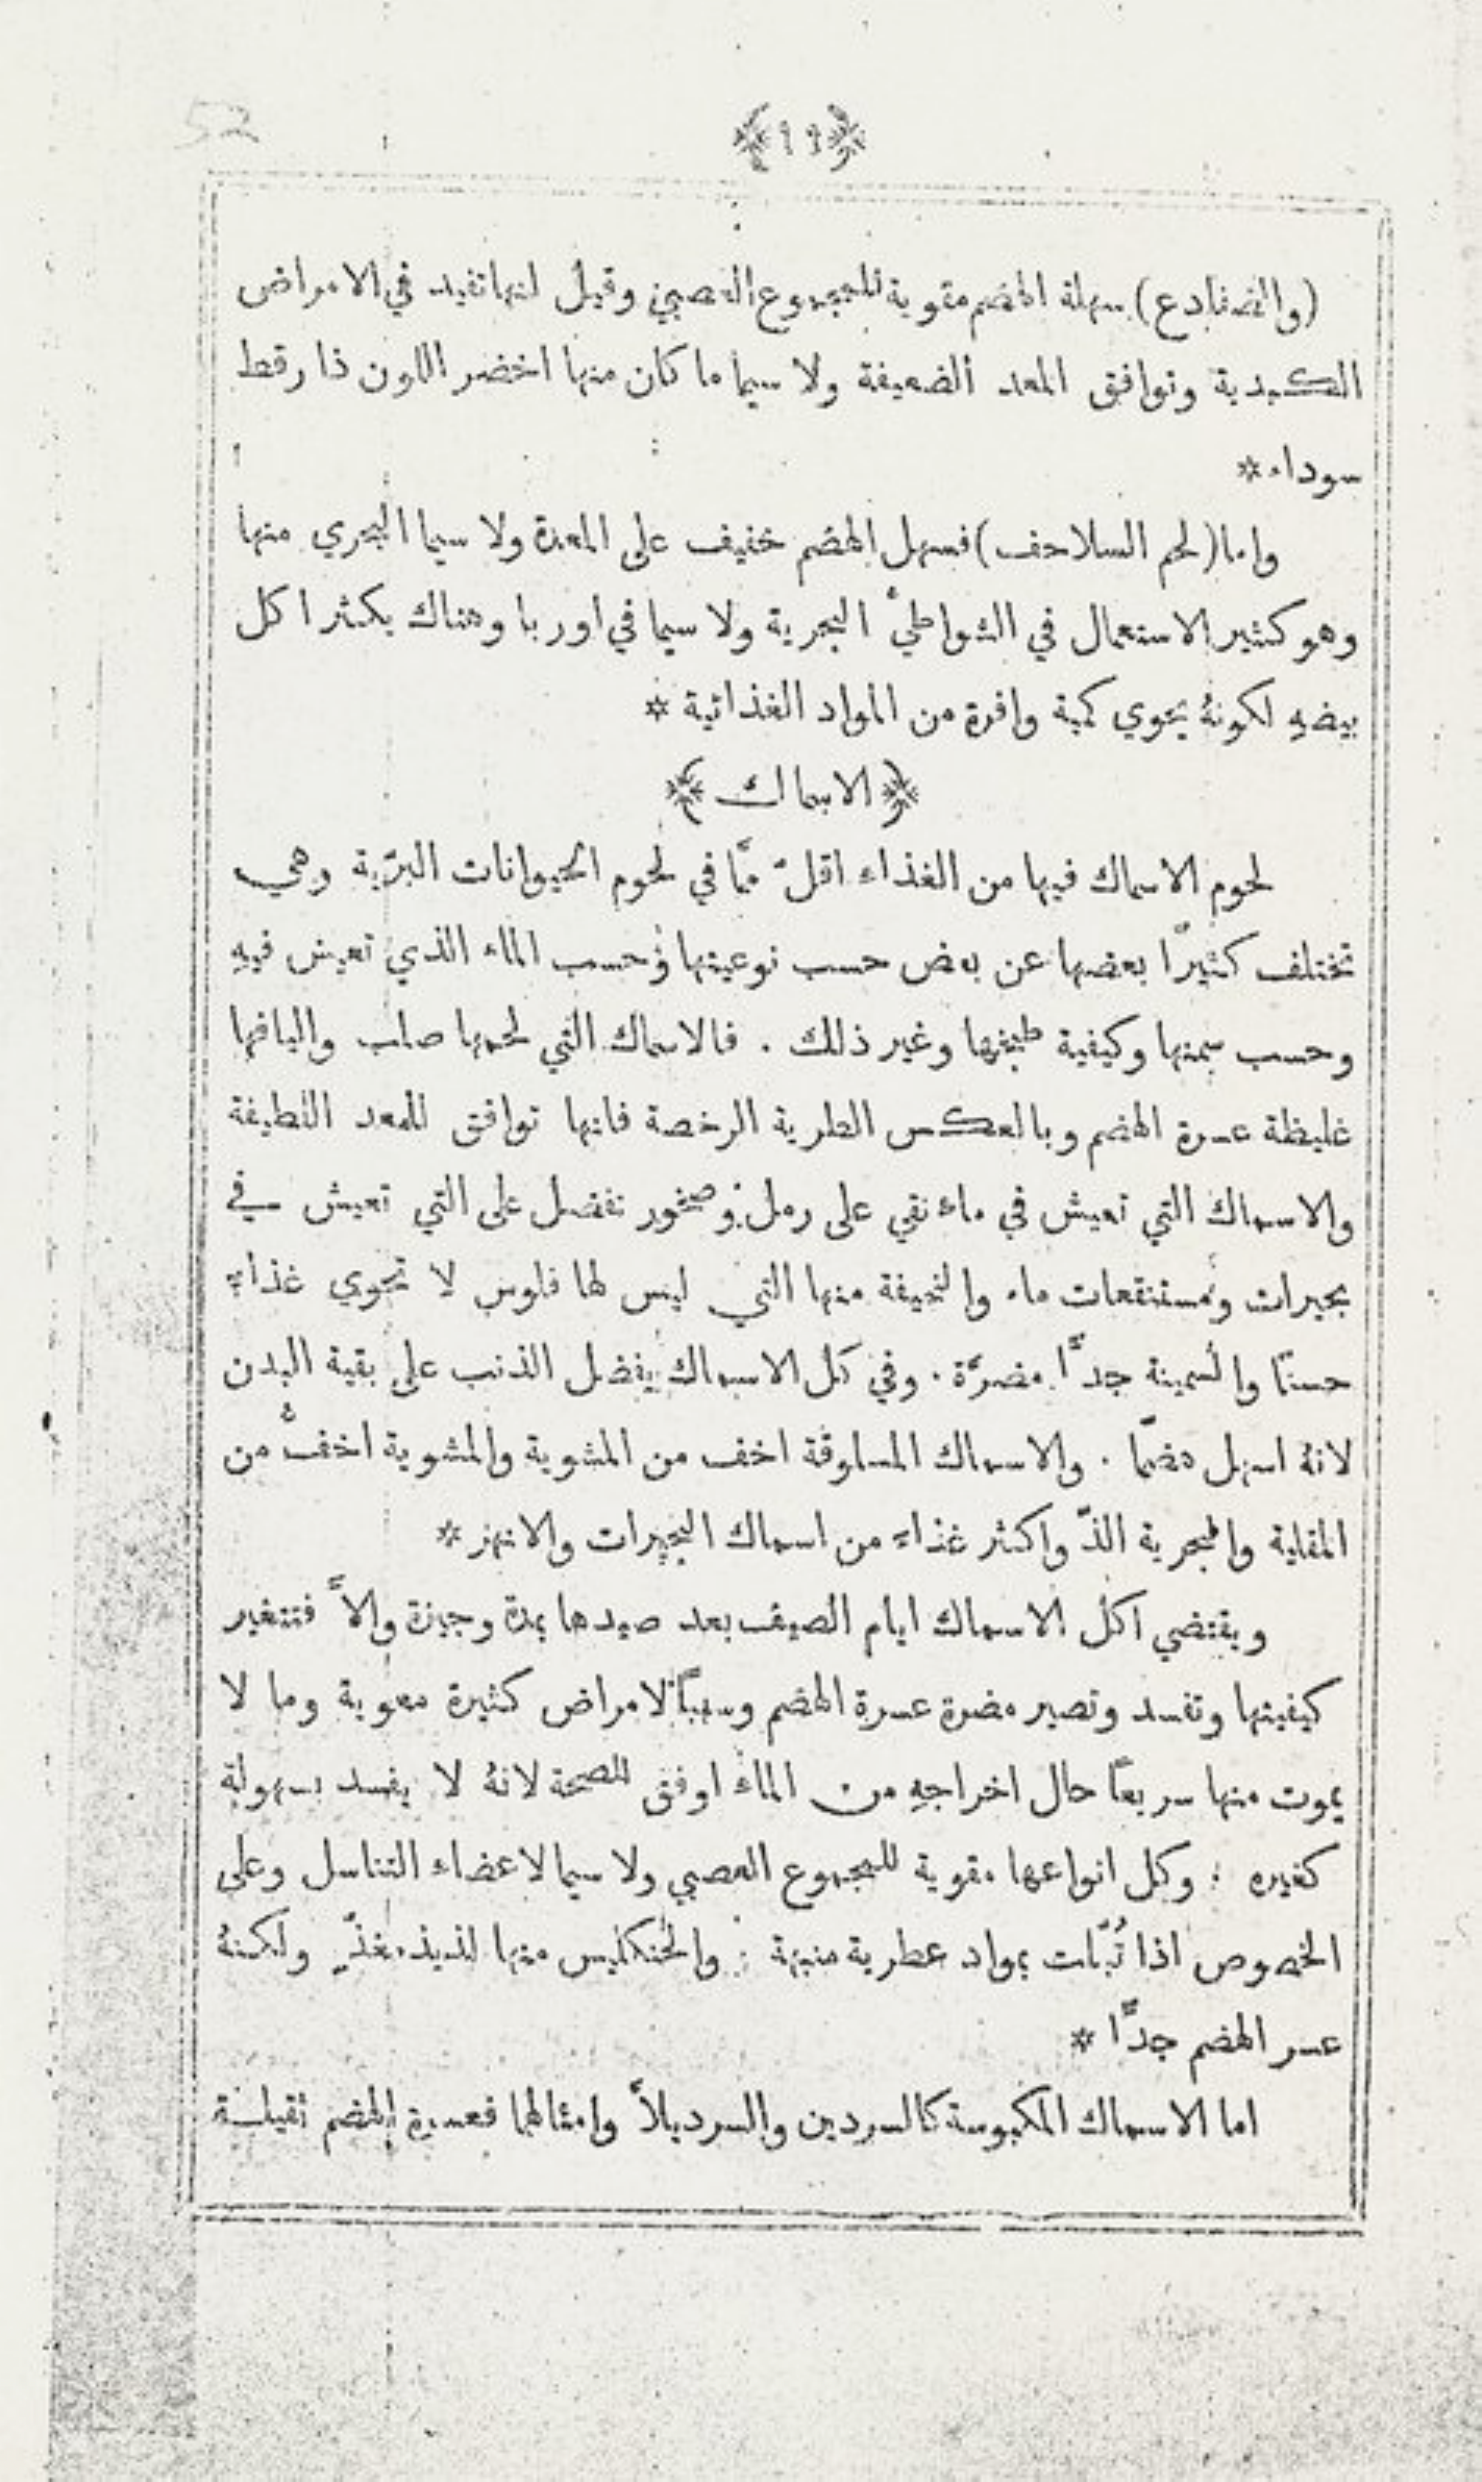 52
﴿١٩﴾
(والضفادع) سهلة الهضم مقوية للمجموع العصبي وقيل انها تفيد في الامراض
الكبدية وتوافق المعد الضعيفة ولا سيما ما كان منها اخضر اللون ذا رقط
سوداء *
واما (لحم السلاحف) فسهل الهضم خفيف على المعدة ولا سيما البحري منها
وهو كثير الاستعمال في الشواطئ البحرية ولا سيما في اوربا وهناك يكثر اكل
بيضهِ لكونهُ يحوي كمية وافرة من المواد الغذائية *
﴿الاسماك﴾
لحوم الاسماك فيها من الغذاء اقلّ ممَّا في لحوم الحيوانات البرّية وهي
تختلف كثيرًا بعضها عن بعض حسب نوعيتها وحسب الماء الذي تعيش فيهِ
وحسب سمنها وكيفية طبخها وغير ذلك . فالاسماك التي لحمها صلب واليافها
غليظة عسرة الهضم وبالعكس الطرية الرخصة فانها توافق للمعد اللطيفة
والاسماك التي تعيش في ماء نقي على رمل وصخور تفضل على التي تعيش في
بحيرات ومستنقعات ماء والنحيفة منها التي ليس لها فلوس لا تحوي غذاءً
حسنًا والسمينة جدًّا مضرَّة . وفي كل الاسماك يفضل الذنب على بقية البدن
لانهُ اسهل هضمًا . والاسماك المسلوقة اخف من المشوية والمشوية اخفُّ من
المقلية والبحرية الذّ واكثر غذاء من اسماك البحيرات والانهر *
ويقتضي اكل الاسماك ايام الصيف بعد صيدها بمدة وجيزة والاَّ فتتغير
كيفيتها وتفسد وتصير مضرة عسرة الهضم وسببًا لامراض كثيرة معوية وما لا
يموت منها سريعًا حال اخراجهِ من الماء اوفق للصحة لانهُ لا يفسد بسهولة
كغيره . وكل انواعها مقوية للمجموع العصبي ولا سيما لاعضاء التناسل وعلى
الخصوص اذا تُبّلت بمواد عطرية منبهة . والحنكليس منها لذيذ مغذّ ولكنهُ
عسر الهضم جدًّا *
اما الاسماك المكبوسة كالسردين والسرديلاَّ وامثالهما فعسرة الهضم ثقيلة